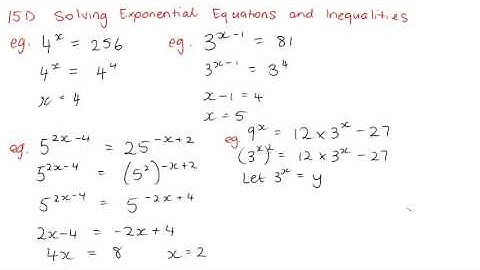 15D Solving Exponential Equations and Inequalities
eg. 4^x = 256
4^x = 4^4
x = 4
eg. 3^{x-1} = 81
3^{x-1} = 3^4
x-1 = 4
x = 5
eg. 5^{2x-4} = 25^{-x+2}
5^{2x-4} = (5^2)^{-x+2}
5^{2x-4} = 5^{-2x+4}
2x-4 = -2x+4
4x = 8 x=2
eg. 9^x = 12 × 3^x - 27
(3^x)^2 = 12 × 3^x - 27
Let 3^x = y